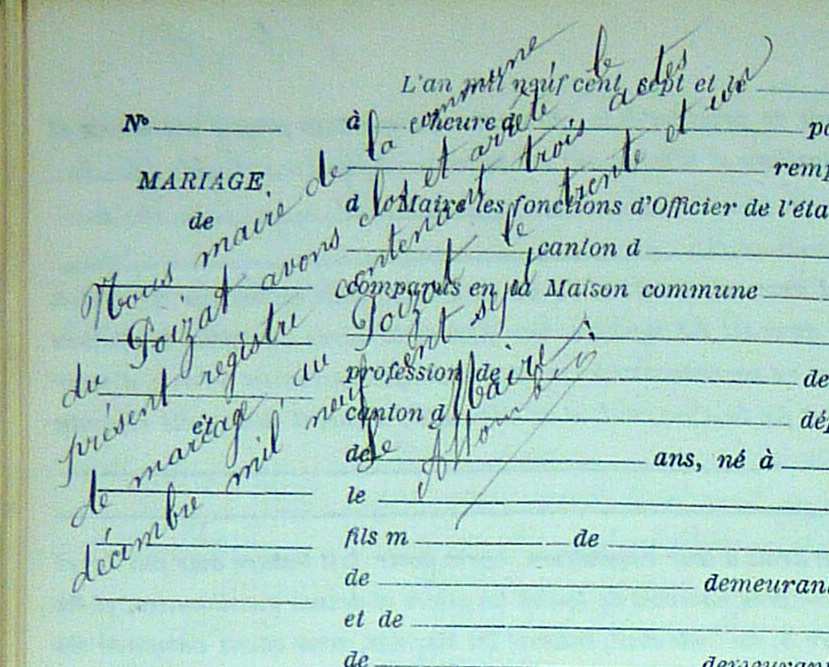 L'an mil neuf cent sept et le
No
à heure d
MARIAGE
remp
de
d Maire les fonctions d'Officier de l'éta
canton d
comparus en la Maison commune
profession de de
et
canton d dép
de ans, né à
le
fils m de
de demeurant
et de
de demeurant
Nous maire de la commune
du Poizat avons clos et arrêté le
présent registre contenant trois actes
de mariage, au Poizat le trente et un
décembre mil neuf cent sept
Le Maire